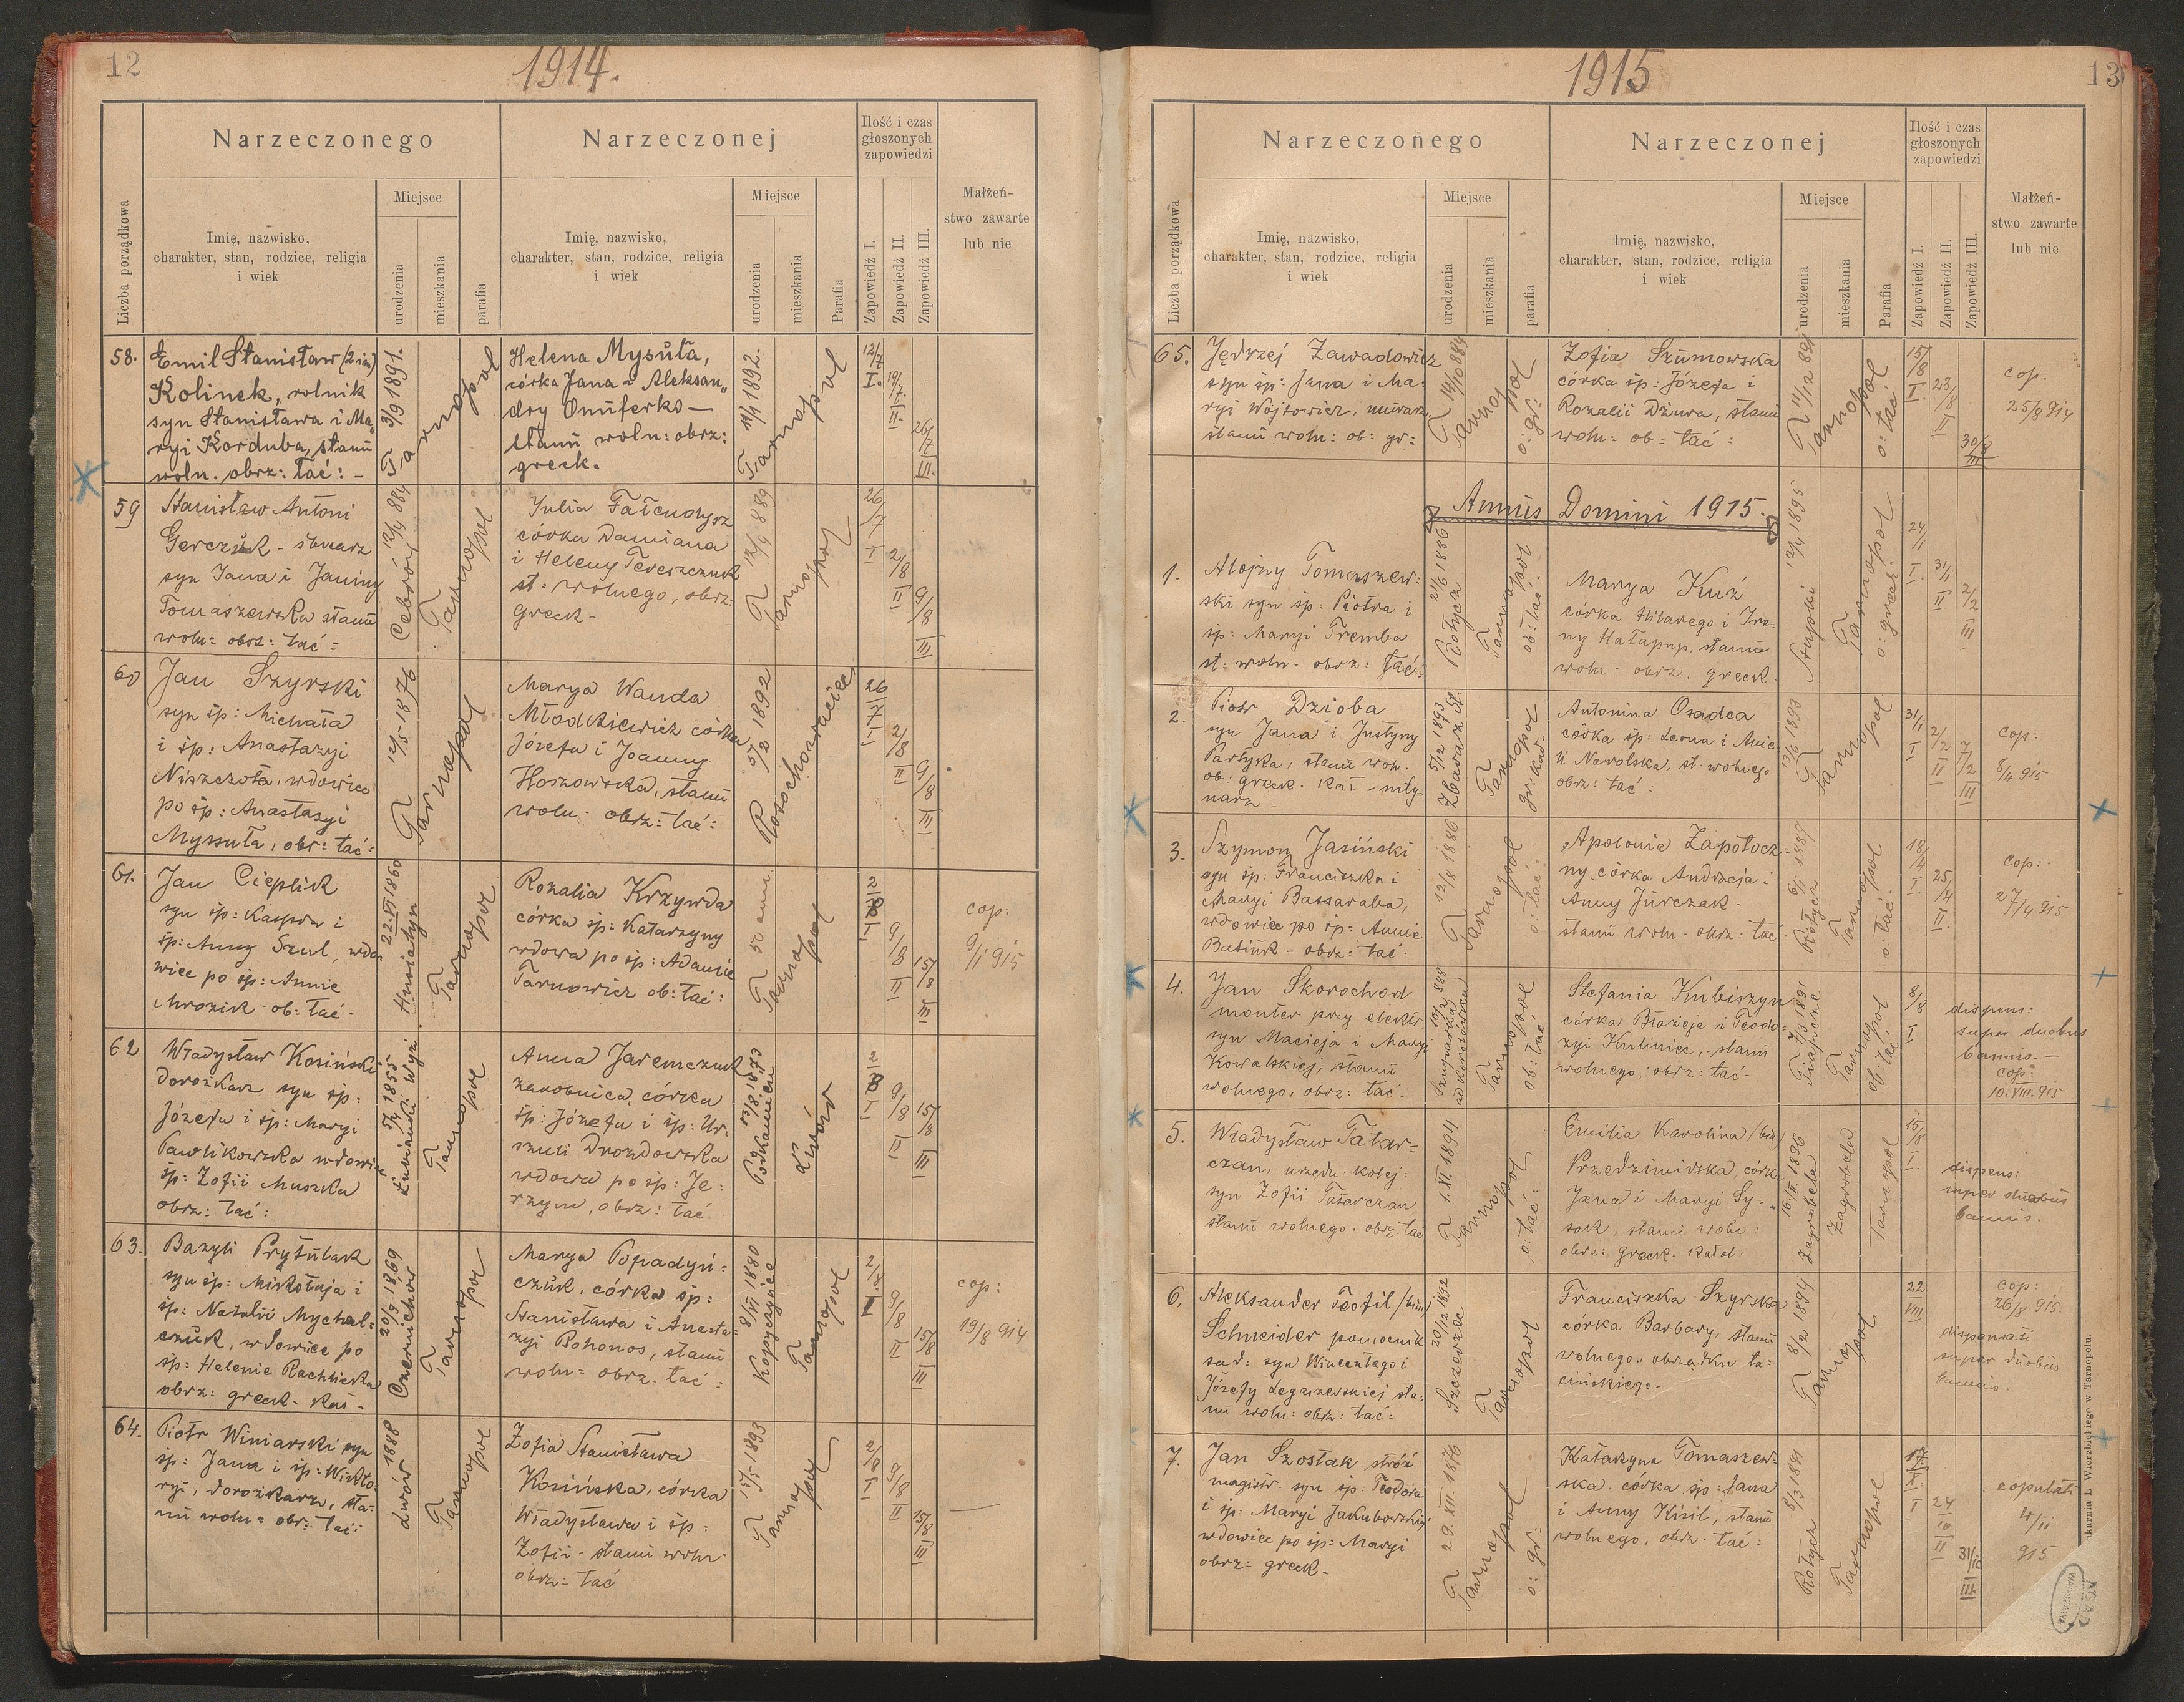 12
1914.
Narzeczonego
Narzeczonej
Ilość i czas
głoszonych
zapowiedzi
Małżeń-
stwo zawarte
lub nie
Liczba porządkowa
Imię, nazwisko,
charakter, stan, rodzice, religia
i wiek
Miejsce
urodzenia
mieszkania
parafia
Imię, nazwisko,
charakter, stan, rodzice, religia
i wiek
Miejsce
urodzenia
mieszkania
Parafia
Zapowiedź I.
Zapowiedź II.
Zapowiedź III.
58.
Emil Stanisław (2 im)
Kolinek, rolnik
syn Stanisława i Ma„
ryi Korduba, stanu
woln. obrz: łać: -
3/9 1891.
Tarnopol
Helena Mysuła,
córka Jana - Aleksan„
dry Onuferko —
stanu woln: obrz:
greck.
11/1 1892.
Tarnopol
12/7
I.
19/7
II.
26/7
III.
59
Stanisław Antoni
Gerczuk - ślusarz
syn Jana i Janiny
Tomaszewska stanu
woln= obrz: łać=
12/4 884
Cebrów
Tarnopol
Julia Fałendysz
córka Damiana
i Heleny Tereszczuk
st= wolnego, obrz:
greck-
12/4 889
T
Tarnopol
26/7
I
2/8
II
9/8
III
60
Jan Szyrski
syn śp: Michała
i śp: Anastazyi
Niszczota, wdowiec
po śp: Anastazyi
Myssuła, obr= łać=
12/5 1876
T
Tarnopol
Marya Wanda
Młodkiewicz córka
Józefa i Joanny
Hoszowska, stanu
woln- obrz= łać=
5/2 1892
Rosochowaciec
26/7
I
2/8
II
9/8
III
61.
Jan Cieplik
syn śp: Kaspra i
śp: Anny Szul, wdo„
wiec po śp: Annie
Mrozik - ob= łać-
22.VI 1860
Husiatyn
Tarnopol
Rozalia Krzywda
córka śp: Katarzyny
wdowa po śp: Adamie
Tarnowicz ob: łać=
T 50 ann.
Tarnopol
2/8
I
9/8
II
15/8
III
cop:
9/1 915
62
Władysław Kosiński
dorożkarz syn śp:
Józefa i śp: Maryi
Pawlikowska wdowiec
śp: Zofii Muszka
obrz: łać:
1855
Tarnopol
Anna Jaremczuk
zarobnica, córka
śp: Józefa i śp: Ur=
szuli Drozdowska
wdowa po śp: Je=
rzym, obrz: łać
13/8 1873
Podkamień
Lwów
2/8
I
9/8
II
15/8
III
63.
Bazyli Prytulak
syn śp: Mikołaja i
śp: Natalii Mychal=
czuk, wdowiec po
śp: Helenie Rachlicka
obrz: greck- kat-
20/9 1869
Czernichów
Tarnopol
Marya Popadyń=
czuk, córka śp:
Stanisława i Anasta=
zyi Bohonos, stanu
woln= obrz. łać=
8/VI 1880
Kopyczyńce
Tarnopol
2/8
I
9/8
II
15/8
III
cop:
19/8 914
64.
Piotr Winiarski syn
śp: Jana i śp: Wikto=
ryi, dorożkarz, sta=
nu woln= obr: łać:
1888
Lwów
Tarnopol
Zofia Stanisława
Kosińska, córka
Władysława i śp=
Zofii - stanu woln
obrz= łać
15/5 1893
T
Tarnopol
2/8
I
9/8
II
15/8
III
—
13
1915
Narzeczonego
Narzeczonej
Ilość i czas
głoszonych
zapowiedzi
Małżeń-
stwo zawarte
lub nie
Liczba porządkowa
Imię, nazwisko,
charakter, stan, rodzice, religia
i wiek
Miejsce
urodzenia
mieszkania
parafia
Imię, nazwisko,
charakter, stan, rodzice, religia
i wiek
Miejsce
urodzenia
mieszkania
Parafia
Zapowiedź I.
Zapowiedź II.
Zapowiedź III.
65.
Jędrzej Zawadowicz
syn śp: Jana i Ma=
ryi Wójtowicz, murarz,
stanu woln: ob: gr:
T 14/10 884
Tarnopol
o: gr:
Zofia Szumowska
córka śp: Józefa i
Rozalii Dżura, stanu
woln= ob= łać:
T 11/2 891
Tarnopol
o: łać:
15/8
I.
23/8
II
30/8
III
cop:
25/8 914
Annus Domini 1915.
1.
Alojzy Tomaszew=
ski syn śp: Piotra i
śp: Maryi Tremba
st: woln- obrz: łać:
21/6 1886
Tarnopol
ob: łać:
Marya Kuź
córka Hilarego i Ire=
ny Hałapup, stanu
woln- obrz. greck-
12/4 1895
Stupki
Tarnopol
o: greck:
24/1
I.
31/1
II
2/2
III
2.
Piotr Dzioba
syn Jana i Justyny
Partyka, stanu woln.
ob: greck. kat - mły-
narz -
5/12 1893
Zbaraż st.
Tarnopol
gr: kat-
Antonina Osadca
córka śp: Leona i Anie
li Nawolska, st- wolnego
obrz: łać:
13/6 1893
T
Tarnopol
31/1
I
2/2
II
7/2
III
cop:
8/4 915
3.
Szymon Jasiński
syn śp: Franciszka i
Maryi Bassaraba,
wdowiec po śp: Annie
Batiuk - obrz= łać.
T 12/8 1886
Tarnopol
o: łać:
Apolonia Zapotocz=
ny córka Andrzeja i
Anny Jurczak-
stanu woln- obrz: łać
1887
Tarnopol
o: łać:
18/4
I.
25/4
II.
cop:
27/4 915
4.
Jan Skorochod
monter przy elektr
syn Macieja i Maryi
Kowalskiej, stanu
wolnego, obrz: łać-
10/2 888
Szuparka
Tarnopol
ob: łać
Stefania Kubiszyn
córka Błażeja i Teodo=
zyi Kuliniec, stanu
wolnego, obrz: łać-
7/3 1891
Tarnopol
ob: łać
8/8
I
dispens:
super duobus
bannis.—
cop:
10.VIII.915
5.
Władysław Tatar=
czan, urzędn: kolej:
syn Zofii Tatarczan
stanu wolnego. obrz: łać
T 1.XI.1894
Tarnopol
o: łać:
Emilia Karolina /bin/
Przedzimirska, córk
Jana i Maryi Sy-„
sak, stanu woln:
obrz: greck. katol-
16/II 1896
Zagrobela
Zagrobela
Tarnopol
15/8
I.
dispens:
super duobus
bannis.
6.
Aleksander Teofil /bin/
Schneider pomocnik
sad: syn Wincentego i
Józefy Legaszewskiej sta,
nu woln: obrz: łać=
20/12 1892
Szczerzec
Tarnopol
Franciszka Szyrska
córka Barbary, stanu
wolnego, obrządku ła=
cińskiego-
T 8/2 1894
Tarnopol
22/VIII
cop:
26/8 915.
dispensati
super duobus
bannis.
7.
Jan Szostak stróż
magistr. syn śp: Teodora
i śp: Maryi Jakubowskiej
wdowiec po śp: Maryi
obrz= greck-
T 29.XII.1876
Tarnopol
o: gr:
Katarzyna Tomaszew-
ska córka śp: Jana
i Anny Kisil, stanu
wolnego, obrz- łać=
8/3 1891
Tarnopol
I
24/10
II
31/10
III
copulati
4/11
915
Drukarnia L. Wierzbickiego w Tarnopolu.
AGAD
WARSZAWA